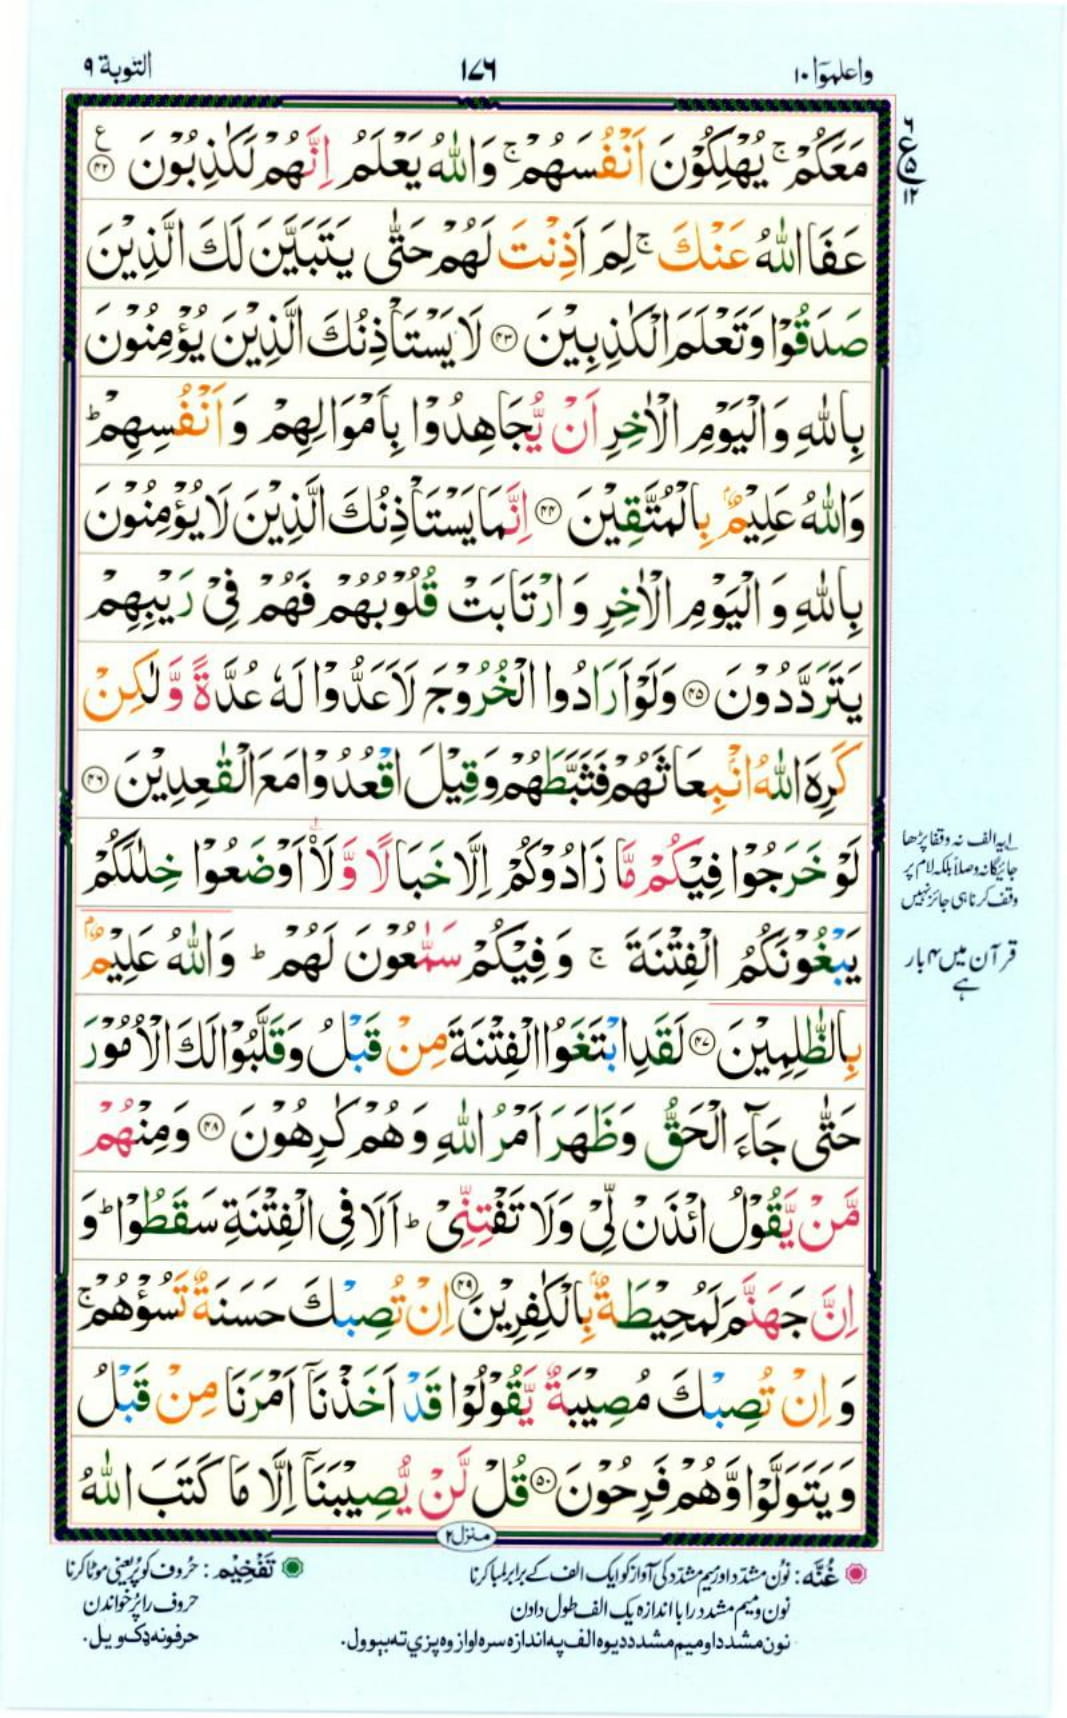 واعلموۤا ۱۰
۱۷۶
التوبة ۹
مَعَكُمْ ۚ يُهْلِكُوْنَ اَنْفُسَهُمْ ۚ وَاللّٰهُ يَعْلَمُ اِنَّهُمْ لَكٰذِبُوْنَ ﴿۴۲﴾ ع
۲
ع
۵
۱۲
عَفَا اللّٰهُ عَنْكَ ۚ لِمَ اَذِنْتَ لَهُمْ حَتّٰى يَتَبَيَّنَ لَكَ الَّذِيْنَ
صَدَقُوْا وَتَعْلَمَ الْكٰذِبِيْنَ ﴿۴۳﴾ لَا يَسْتَاْذِنُكَ الَّذِيْنَ يُؤْمِنُوْنَ
بِاللّٰهِ وَالْيَوْمِ الْاٰخِرِ اَنْ يُّجَاهِدُوْا بِاَمْوَالِهِمْ وَاَنْفُسِهِمْ ؕ
وَاللّٰهُ عَلِيْمٌۢ بِالْمُتَّقِيْنَ ﴿۴۴﴾ اِنَّمَا يَسْتَاْذِنُكَ الَّذِيْنَ لَا يُؤْمِنُوْنَ
بِاللّٰهِ وَالْيَوْمِ الْاٰخِرِ وَارْتَابَتْ قُلُوْبُهُمْ فَهُمْ فِىْ رَيْبِهِمْ
يَتَرَدَّدُوْنَ ﴿۴۵﴾ وَلَوْ اَرَادُوا الْخُرُوْجَ لَاَعَدُّوْا لَهٗ عُدَّةً وَّلٰكِنْ
كَرِهَ اللّٰهُ انْۢبِعَاثَهُمْ فَثَبَّطَهُمْ وَقِيْلَ اقْعُدُوْا مَعَ الْقٰعِدِيْنَ ﴿۴۶﴾
لَوْ خَرَجُوْا فِيْكُمْ مَّا زَادُوْكُمْ اِلَّا خَبَالًا وَّلَا۟اَوْضَعُوْا خِلٰلَكُمْ
يَبْغُوْنَكُمُ الْفِتْنَةَ ۚ وَفِيْكُمْ سَمّٰعُوْنَ لَهُمْ ؕ وَاللّٰهُ عَلِيْمٌۢ
بِالظّٰلِمِيْنَ ﴿۴۷﴾ لَقَدِ ابْتَغَوُا الْفِتْنَةَ مِنْ قَبْلُ وَقَلَّبُوْا لَكَ الْاُمُوْرَ
حَتّٰى جَآءَ الْحَقُّ وَظَهَرَ اَمْرُ اللّٰهِ وَهُمْ كٰرِهُوْنَ ﴿۴۸﴾ وَمِنْهُمْ
مَّنْ يَّقُوْلُ ائْذَنْ لِّىْ وَلَا تَفْتِنِّىْ ؕ اَلَا فِى الْفِتْنَةِ سَقَطُوْا ؕ وَ
اِنَّ جَهَنَّمَ لَمُحِيْطَةٌۢ بِالْكٰفِرِيْنَ ﴿۴۹﴾ اِنْ تُصِبْكَ حَسَنَةٌ تَسُؤْهُمْ ۚ
وَاِنْ تُصِبْكَ مُصِيْبَةٌ يَّقُوْلُوْا قَدْ اَخَذْنَاۤ اَمْرَنَا مِنْ قَبْلُ
وَيَتَوَلَّوْا وَّهُمْ فَرِحُوْنَ ﴿۵۰﴾ قُلْ لَّنْ يُّصِيْبَنَاۤ اِلَّا مَا كَتَبَ اللّٰهُ
لے یہ الف نہ وقفا پڑھا
جائیگا نہ وصلاً بلکہ لام پر
وقف کرنا ہی جائز نہیں
قرآن میں ۴ بار
ہے
منزل ۲
غُنَّه: نون مشدّد اور میم مشدّد کی آواز کو ایک الف کے برابر لمبا کرنا
نون و میم مشدد را با اندازه یک الف طول دادن
نون مشدد او میم مشدد دیوه الف په اندازه سره اواز وه پزي ته بېوول.
تَفْخِیْم: حُروف کو پُر یعنی موٹا کرنا
حروف را پر خواندن
حرفونه ډک ویل.